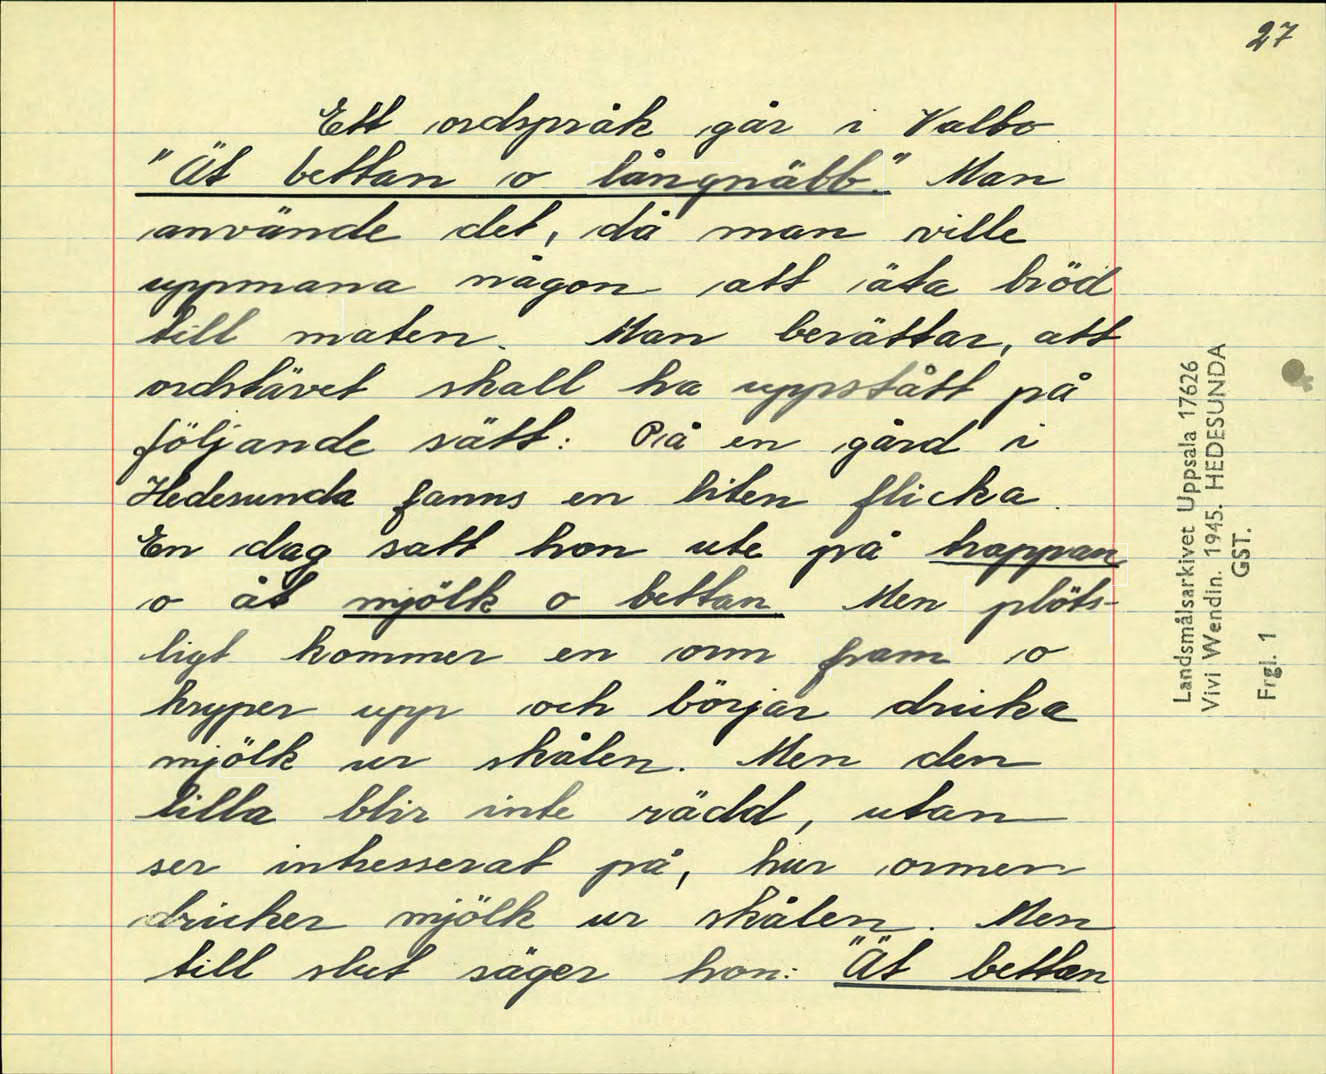 27
Ett ordspråk går i Valbo
"Ät bettan o långnäbb." Man
använde det, då man ville
uppmana någon att äta bröd
till maten. Man berättar, att
ordstävet skall ha uppstått på
följande sätt: På en gård i
Hedesunda fanns en liten flicka.
En dag satt hon ute på trappan
o åt mjölk o bettan. Men plöts-
ligt kommer en orm fram o
kryper upp och börjar dricka
mjölk ur skålen. Men den
lilla blir inte rädd, utan
ser intresserat på, hur ormen
dricker mjölk ur skålen. Men
till slut säger hon: "Ät bettan
Landsmålsarkivet Uppsala 17626
Vivi Wendin. 1945. HEDESUNDA
GST.
Frgl. 1